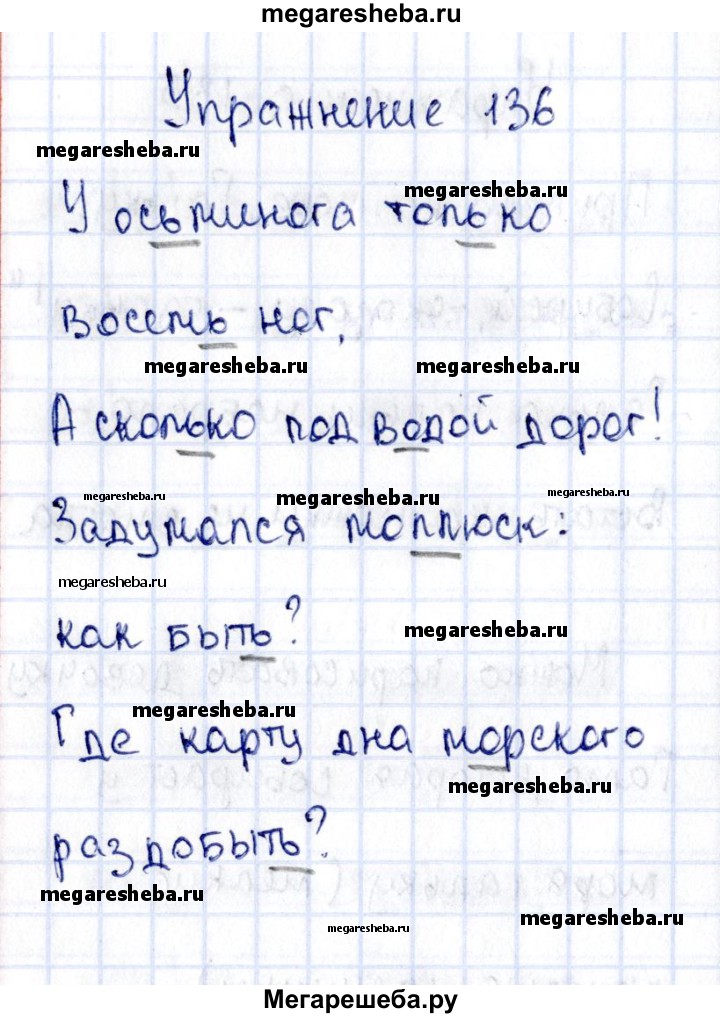 megaresheba.ru
Упражнение 136
megaresheba.ru
megaresheba.ru
У осьминога только
восемь ног,
megaresheba.ru
megaresheba.ru
А сколько под водой дорог!
megaresheba.ru
megaresheba.ru
megaresheba.ru
Задумался моллюск:
megaresheba.ru
как быть?
megaresheba.ru
megaresheba.ru
Где карту дна морского
megaresheba.ru
раздобыть?
megaresheba.ru
megaresheba.ru
megaresheba.ru
Мегарешеба.ру